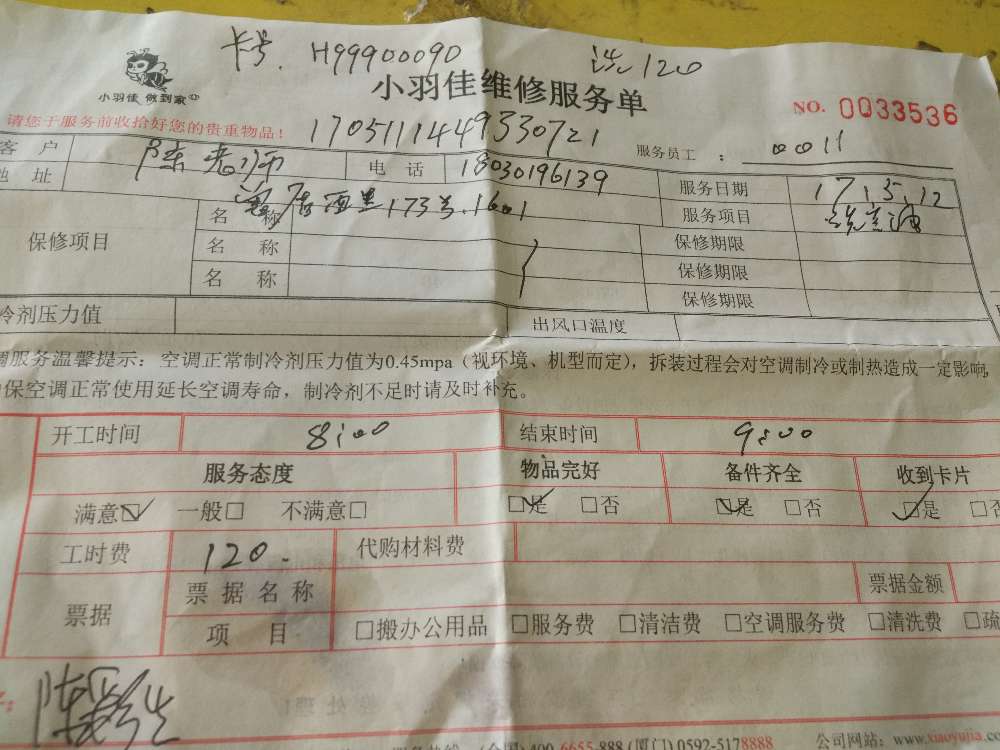 卡号. H99900090 洗120
小羽佳 做到家
小羽佳维修服务单
NO. 0033536
请您于服务前收拾好您的贵重物品！
1705111449330721
服务员工 ： 0011
客 户 陈老师 电 话 18030196139 服务日期 17.5.12
地 址 173号.1601 服务项目
保修项目 名 称 保修期限
名 称 保修期限
名 称 保修期限
冷剂压力值 出风口温度
调服务温馨提示：空调正常制冷剂压力值为0.45mpa（视环境、机型而定），拆装过程会对空调制冷或制热造成一定影响，
保空调正常使用延长空调寿命，制冷剂不足时请及时补充。
开工时间 8:00 结束时间 9:00
服务态度 物品完好 备件齐全 收到卡片
满意☑ 一般□ 不满意□ ☑是 □否 ☑是 □否 ☑是 □否
工时费 120.- 代购材料费
票据 票据名称 票据金额
项 目 □搬办公用品 □服务费 □清洁费 □空调服务费 □清洗费 □疏
服务热线：(全国) 400-6655-888 (厦门) 0592-5178888 公司网站：www.xiaoyujia.com